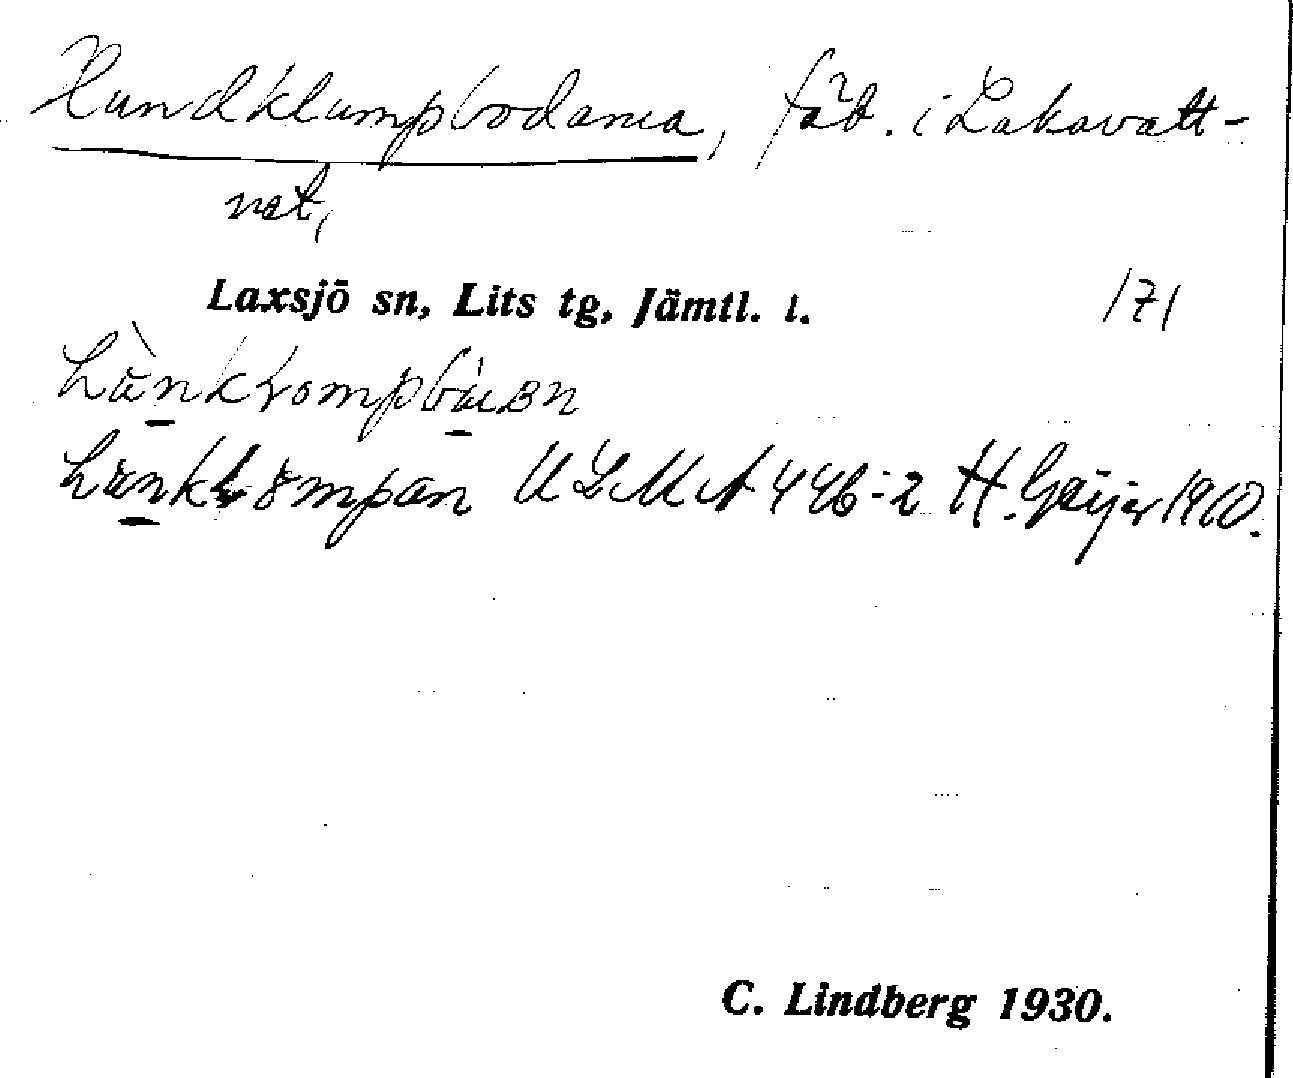 Hundklumpbodarna, fäb. i Lakavatt-
net,
Laxsjö sn, Lits tg, Jämtl. l.
171
ULMA 446:2 H. Geijer 1910.
C. Lindberg 1930.